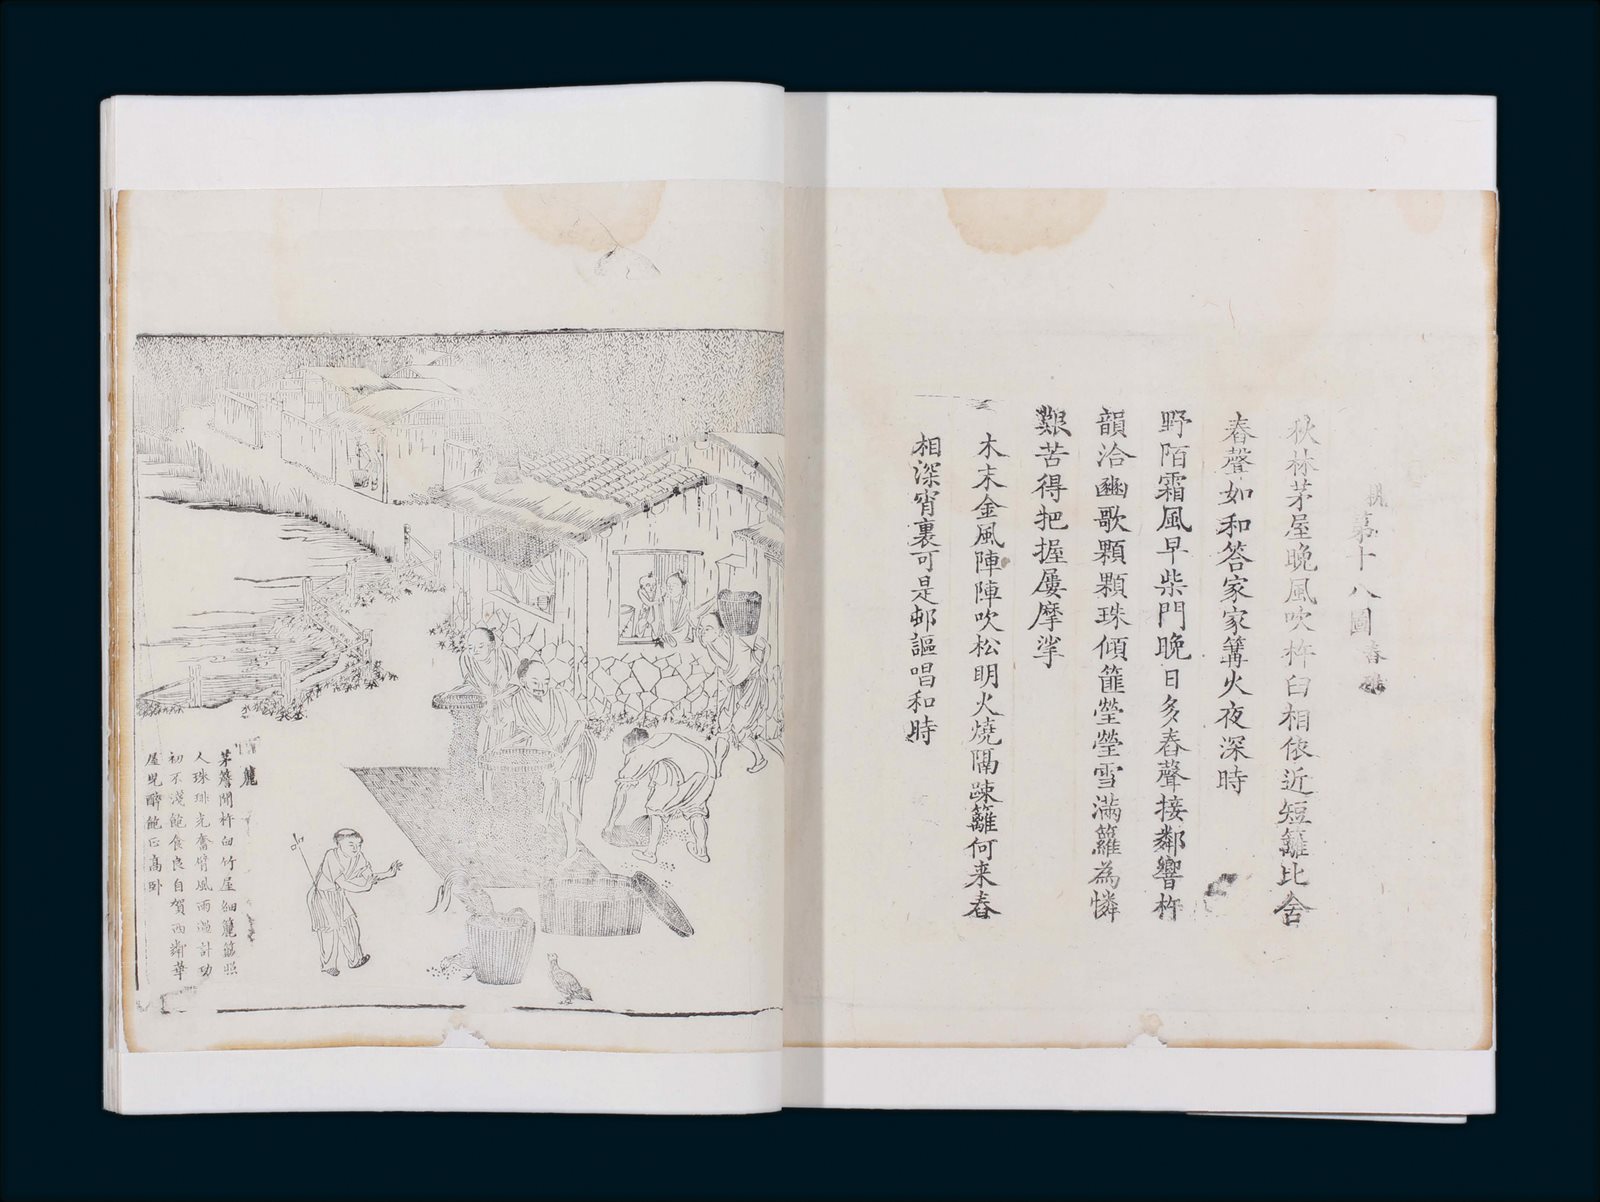 第十八圖舂碓
秋林茅屋晚風吹杵臼相依近短籬比舍
舂聲如和答家家篝火夜深時
野陌霜風早柴門晚日多舂聲接鄰響杵
韻洽豳歌顆顆珠傾篚瑩瑩雪滿籮為憐
艱苦得把握屢摩挲
木末金風陣陣吹松明火燒隔疎籬何来舂
相深宵裏可是邨謳唱和時
籭
茅簷閒杵臼竹屋細籭簁照
人珠琲光奮臂風雨過計功
初不淺飽食良自賀西鄰華
屋兒醉飽正高卧